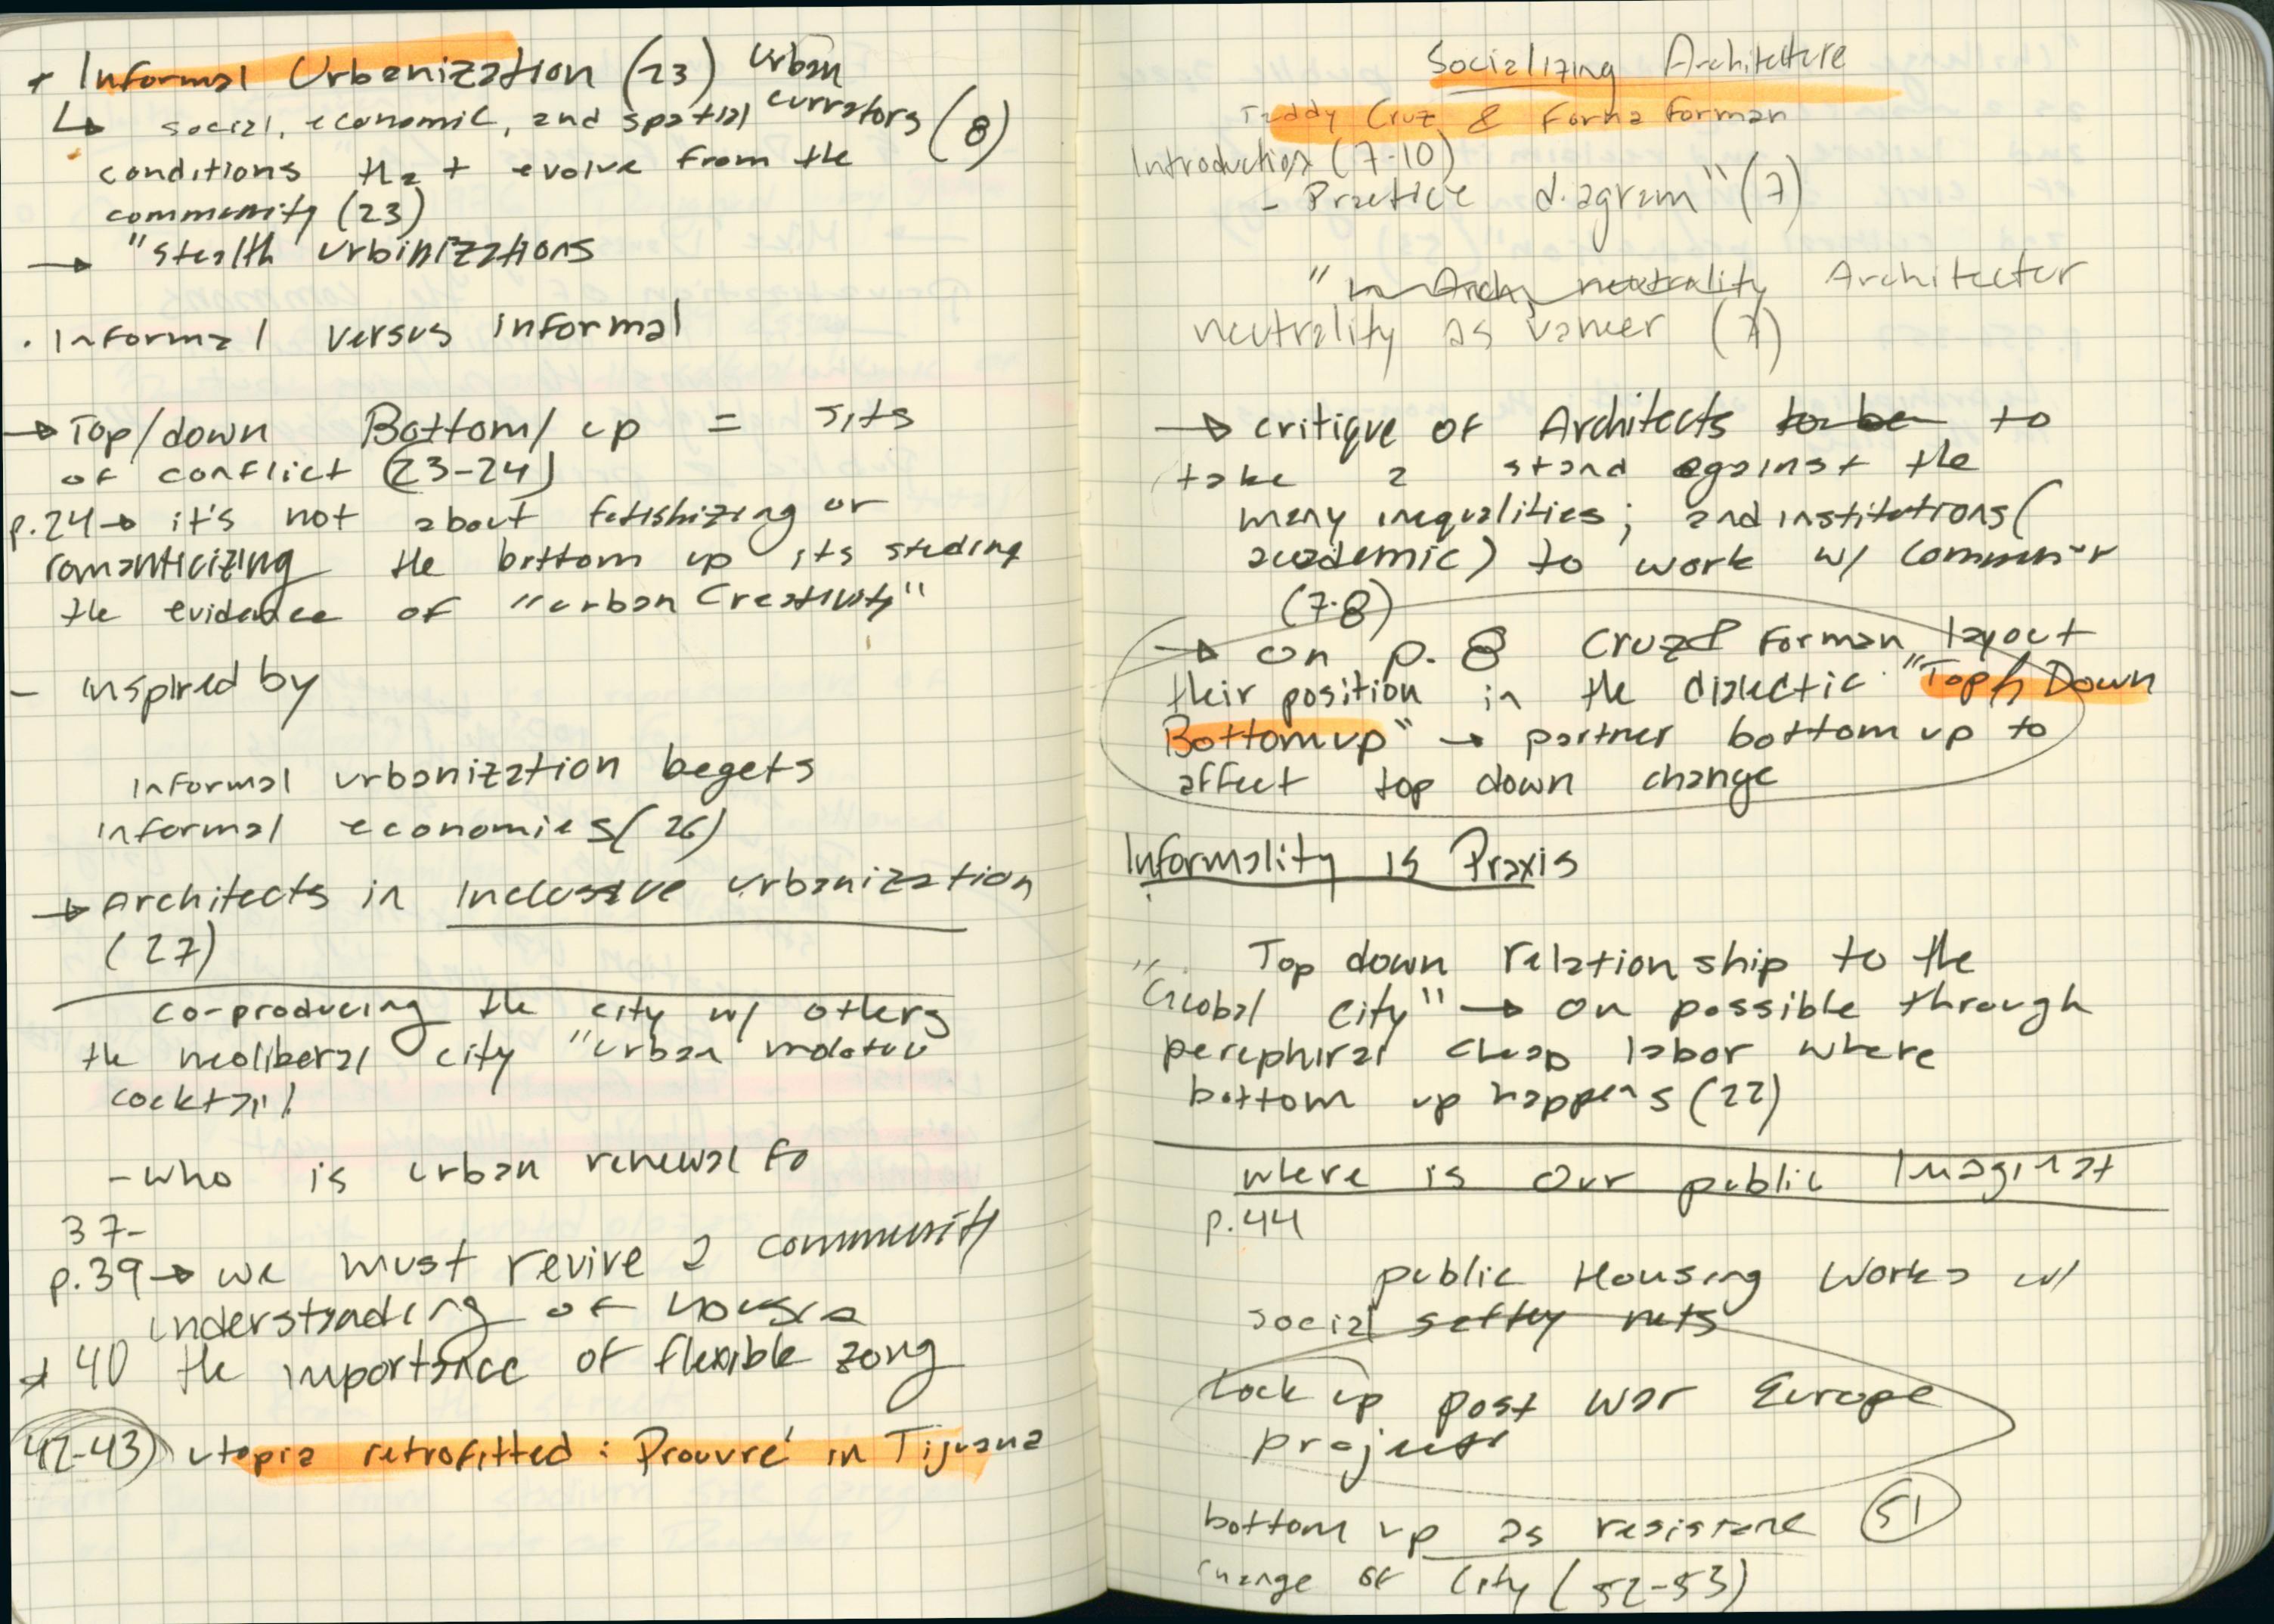 * Informal Urbanization (23) Urban
↳ social, economic, and spatial currators (8)
conditions that evolve from the
community (23)
→ "Stealth Urbinizations
. Informal versus informal
→ Top/down Bottom/up = sits
of conflict (23-24)
p.24→ it's not about fetishizing or
romanticizing the bottom up its studing
the evidence of "urban Creativity"
- inspired by
informal urbanization begets
informal economies (26)
→ Architects in inclusive urbanization
(27)
co-producing the city w/ others
the neoliberal city "urban molotov
cocktail
- who is urban renewal fo
37-
p.39→ we must revive a community
understanding of
* 40 the importance of flexible zong
42-43) utopia retrofitted: Prouvré in Tijuana
Socializing Architecture
Teddy Cruz & Fonna Forman
Introduction (7-10)
- Practice diagram" (7)
" Architectur
neutrality as vaneer (7)
→ critique of Architects to be to
take a stand against the
many inequalities; and institutions(
academic) to work w/
(7-8)
→ on p. 8 Cruz & Forman layout
their position in the dialectic "Top/ Down
Bottom up" → partner bottom up to
affect top down change
Informality is Praxis
Top down relationship to the
"Global City" → on possible through
periphiral cheap labor where
bottom up happens (22)
where is our public Imaginat
p.44
public Housing works w/
social saftey nets
Look up post war Europe
projects
bottom up as resistane (51)
change of City (52-53)